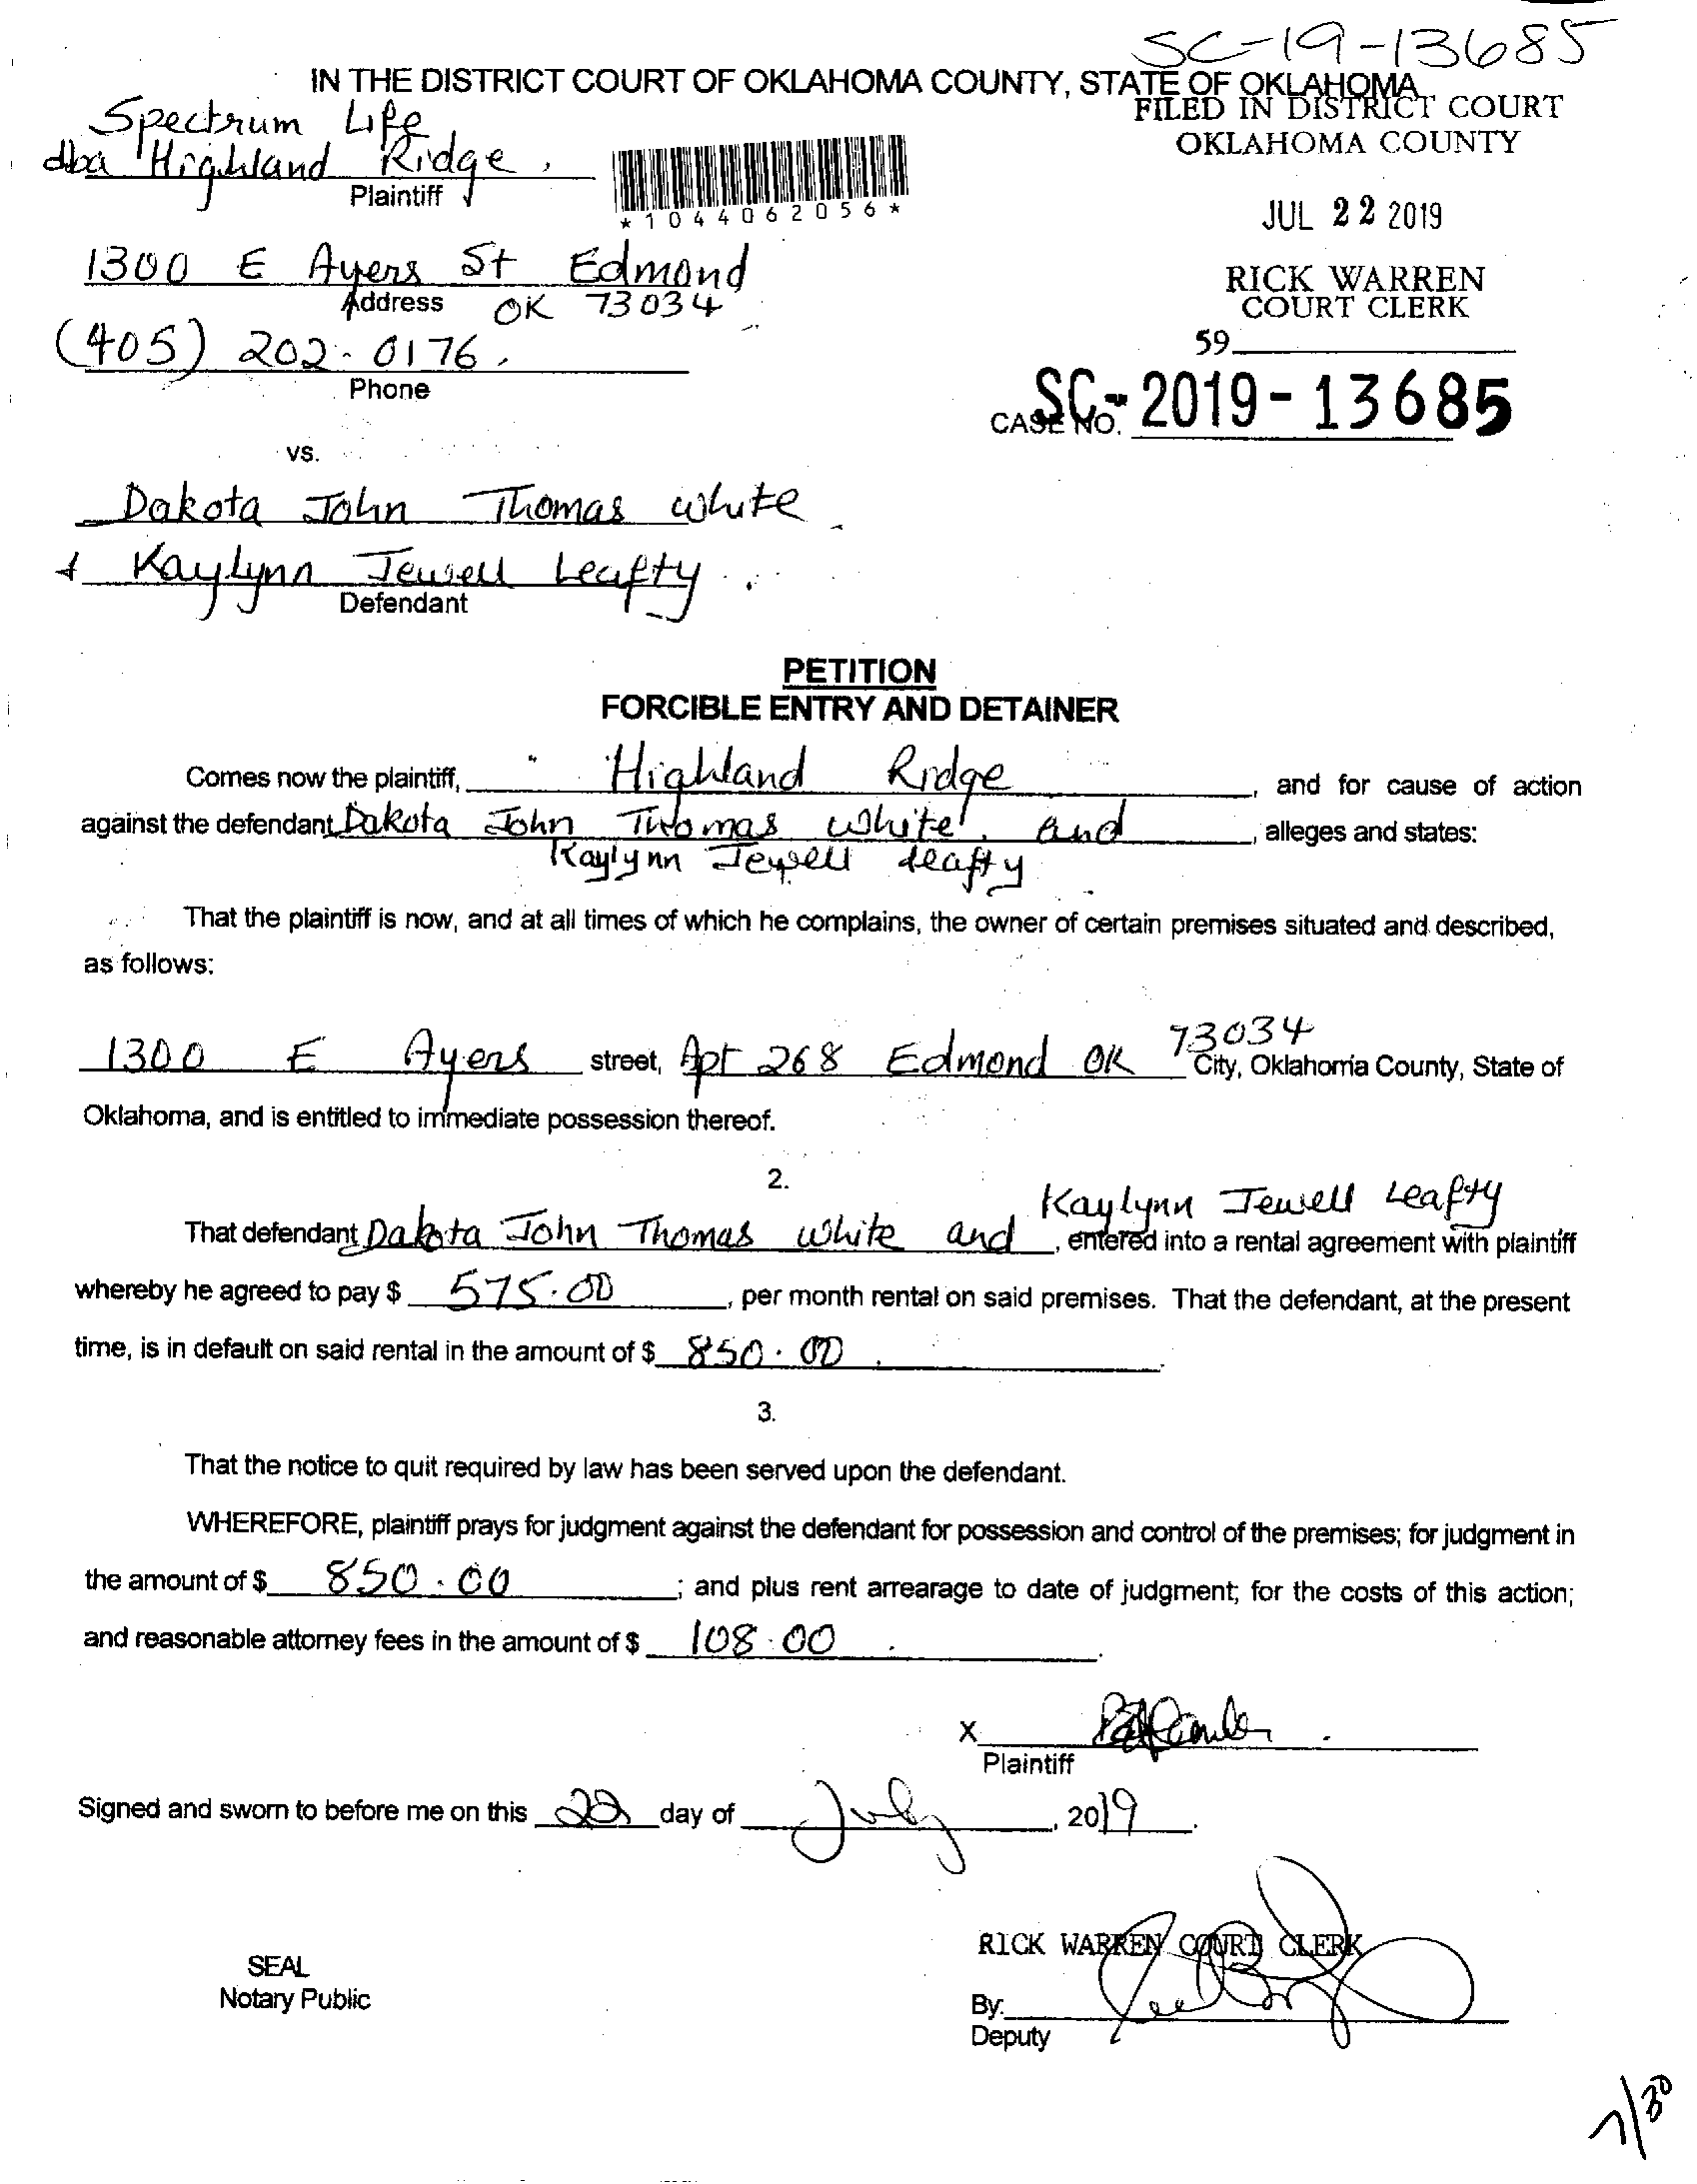 SC-19-13685
IN THE DISTRICT COURT OF OKLAHOMA COUNTY, STATE OF OKLAHOMA
FILED IN DISTRICT COURT
OKLAHOMA COUNTY
Spectrum Life
dba Highland Ridge,
Plaintiff
*1044062056*
JUL 22 2019
1300 E Ayers St Edmond
Address OK 73034
RICK WARREN
COURT CLERK
(405) 202-0176.
Phone
59
CASE NO. SC-2019-13685
vs.
Dakota John Thomas White
& Kaylynn Jewell Leafty
Defendant
PETITION
FORCIBLE ENTRY AND DETAINER
Comes now the plaintiff, Highland Ridge, and for cause of action
against the defendant Dakota John Thomas White, and, alleges and states:
Kaylynn Jewell Leafty
That the plaintiff is now, and at all times of which he complains, the owner of certain premises situated and described,
as follows:
73034
1300 E Ayers street, Apt 268 Edmond OK City, Oklahoma County, State of
Oklahoma, and is entitled to immediate possession thereof.
2.
Kaylynn Jewell Leafty
That defendant Dakota John Thomas White and, entered into a rental agreement with plaintiff
whereby he agreed to pay $ 575.00, per month rental on said premises. That the defendant, at the present
time, is in default on said rental in the amount of $ 850.00.
3.
That the notice to quit required by law has been served upon the defendant.
WHEREFORE, plaintiff prays for judgment against the defendant for possession and control of the premises; for judgment in
the amount of $ 850.00; and plus rent arrearage to date of judgment; for the costs of this action;
and reasonable attorney fees in the amount of $ 108.00.
X
Plaintiff
Signed and sworn to before me on this 22 day of July, 2019.
RICK WARREN COURT CLERK
SEAL
Notary Public
By:
Deputy
7/30